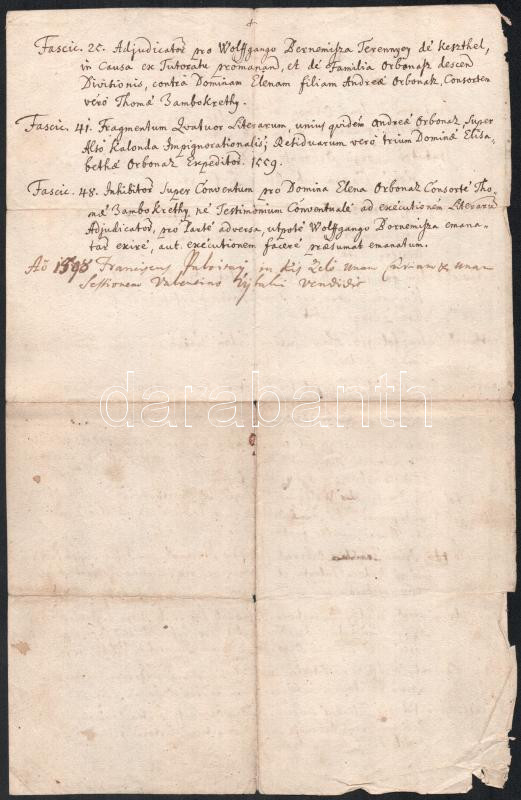 4
Fascic. 25. Adjudicator̃ pro Wolffgango Bernemisza Terennyey de Keszthel,
in Causa ex Tutoratu promanan̄, et de Familia Orbonasz descen
Divisionis, contra Dominam Elenam filiam Andreæ Orbonasz, Consorten
verò Thomæ Zambokrethy.
Fascic. 41. Fragmentum Qvatuor Literarum, unius quidem Andreæ Orbonaz Super
Alsó Kalonda Impignorationalis; Residuarum verò trium Dominæ Elisa-
bethæ Orbonaz Expeditor. 1559.
Fascic. 48. Inhibitor̃ Super Conventum pro Domina Elena Orbonaz Consorte Tho-
mæ Zambokrethy, ne Testimonium Conventuale ad executionem Literarū
Adjudicator̃, pro Parte adversa, utpote Wolffgango Bornemisza emana-
tar̃ exire, aut executionem facere præsumat emanatum.
Aō 1595 Franciscus in Kis Zeló unam Curiam & unam
Sessionem Valentino vendidit
darabanth